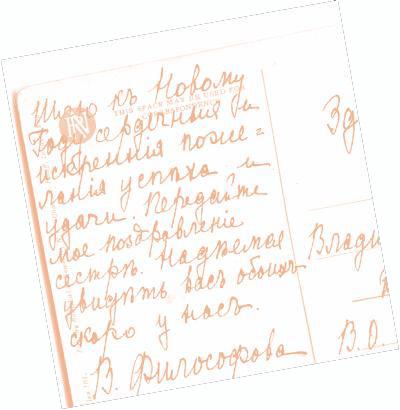 Шлю къ Новому
Году сердечныя и
искреннія поже=
ланія успѣха и
удачи. Передайте
мое поздравленіе
сестрѣ. Надѣемся
увидѣть васъ обоихъ
скоро у насъ.
В. Философова
THIS SPACE MAY BE USED FOR
CORRESPONDENCE
Зд
Влади
В.О.